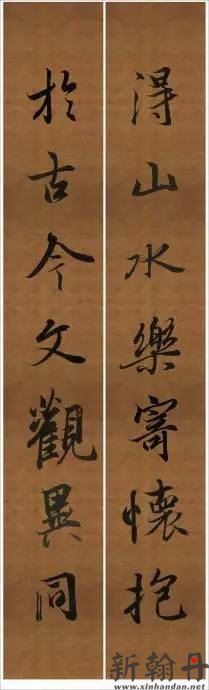 得山水樂寄懷抱
於古今文觀異同
新翰丹
www.xinhandan.net